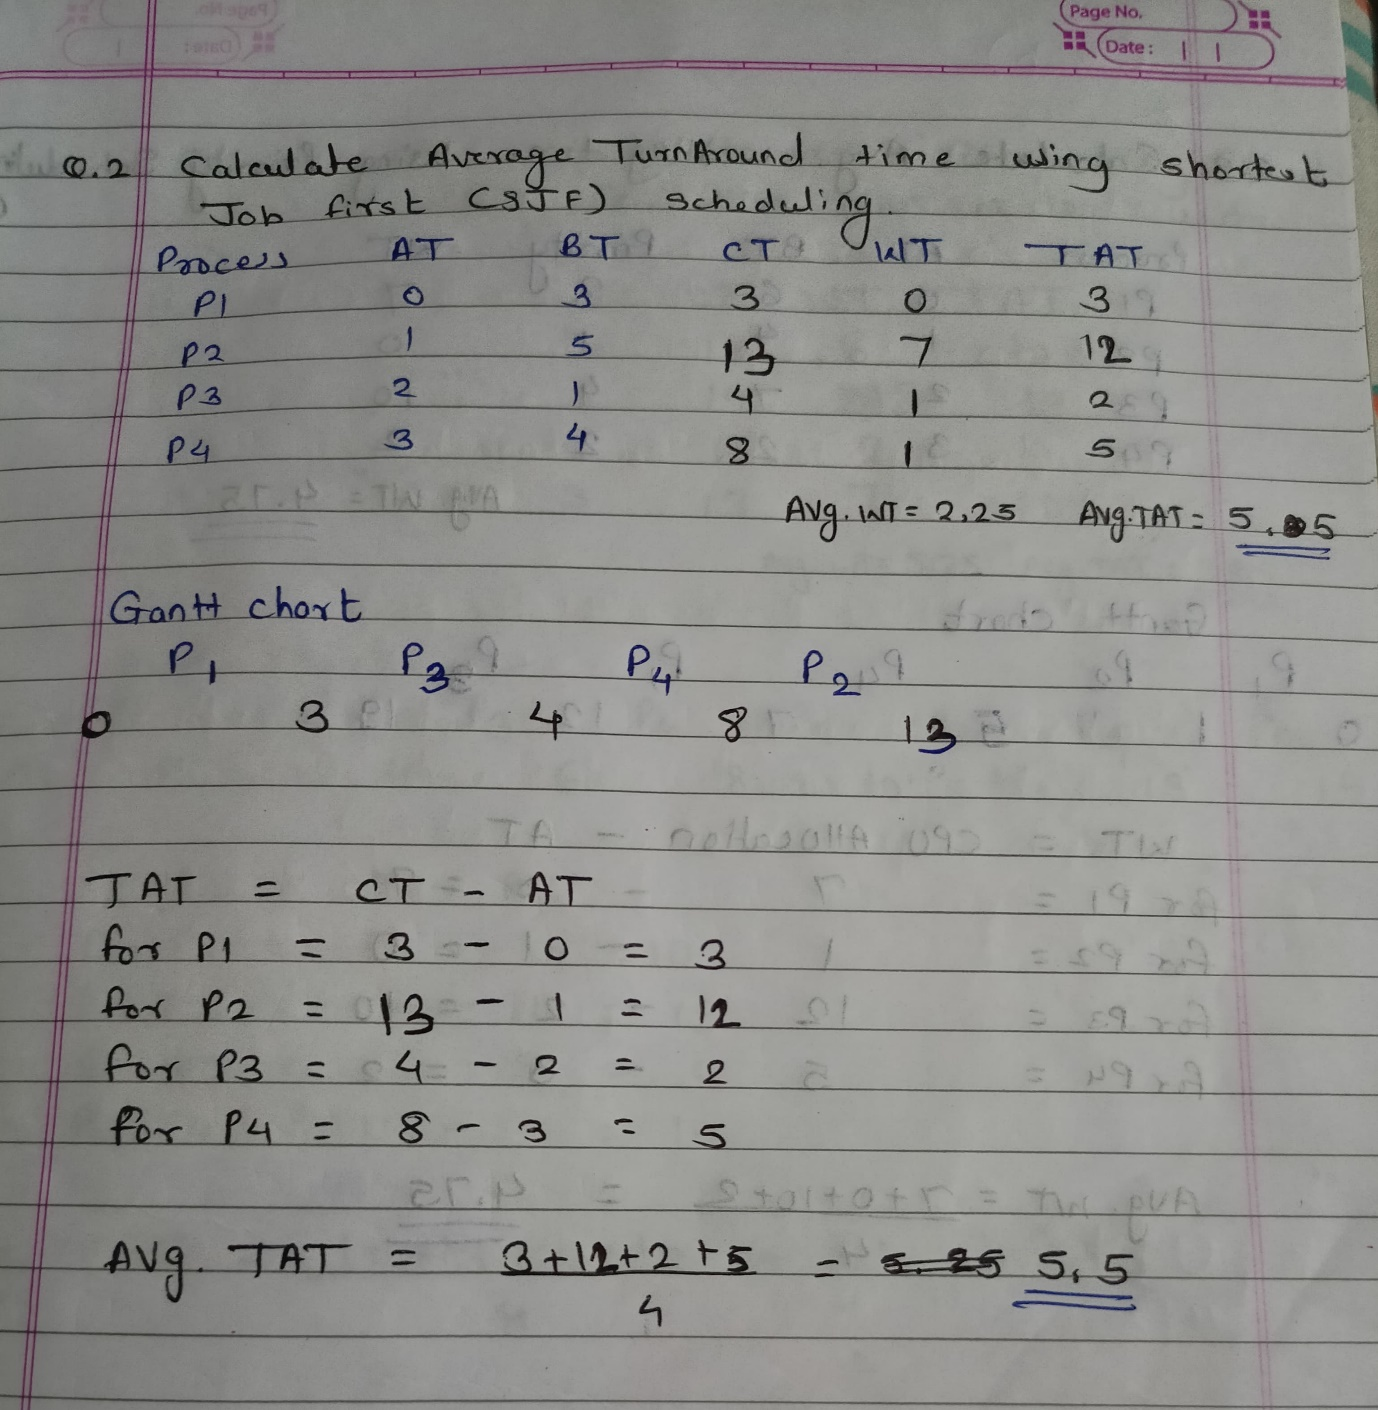 Page No.
Date:
Q.2 Calculate Average TurnAround time using shortest
Job first (SJF) scheduling.
Process AT BT CT WT TAT
P1 0 3 3 0 3
P2 1 5 13 7 12
P3 2 1 4 1 2
P4 3 4 8 1 5
Avg. WT = 2.25 Avg. TAT = 5.5
Gantt chart
P1 P3 P4 P2
0 3 4 8 13
TAT = CT - AT
for P1 = 3 - 0 = 3
for P2 = 13 - 1 = 12
for P3 = 4 - 2 = 2
for P4 = 8 - 3 = 5
Avg. TAT = 3+12+2+5 = 5.25 5.5
4